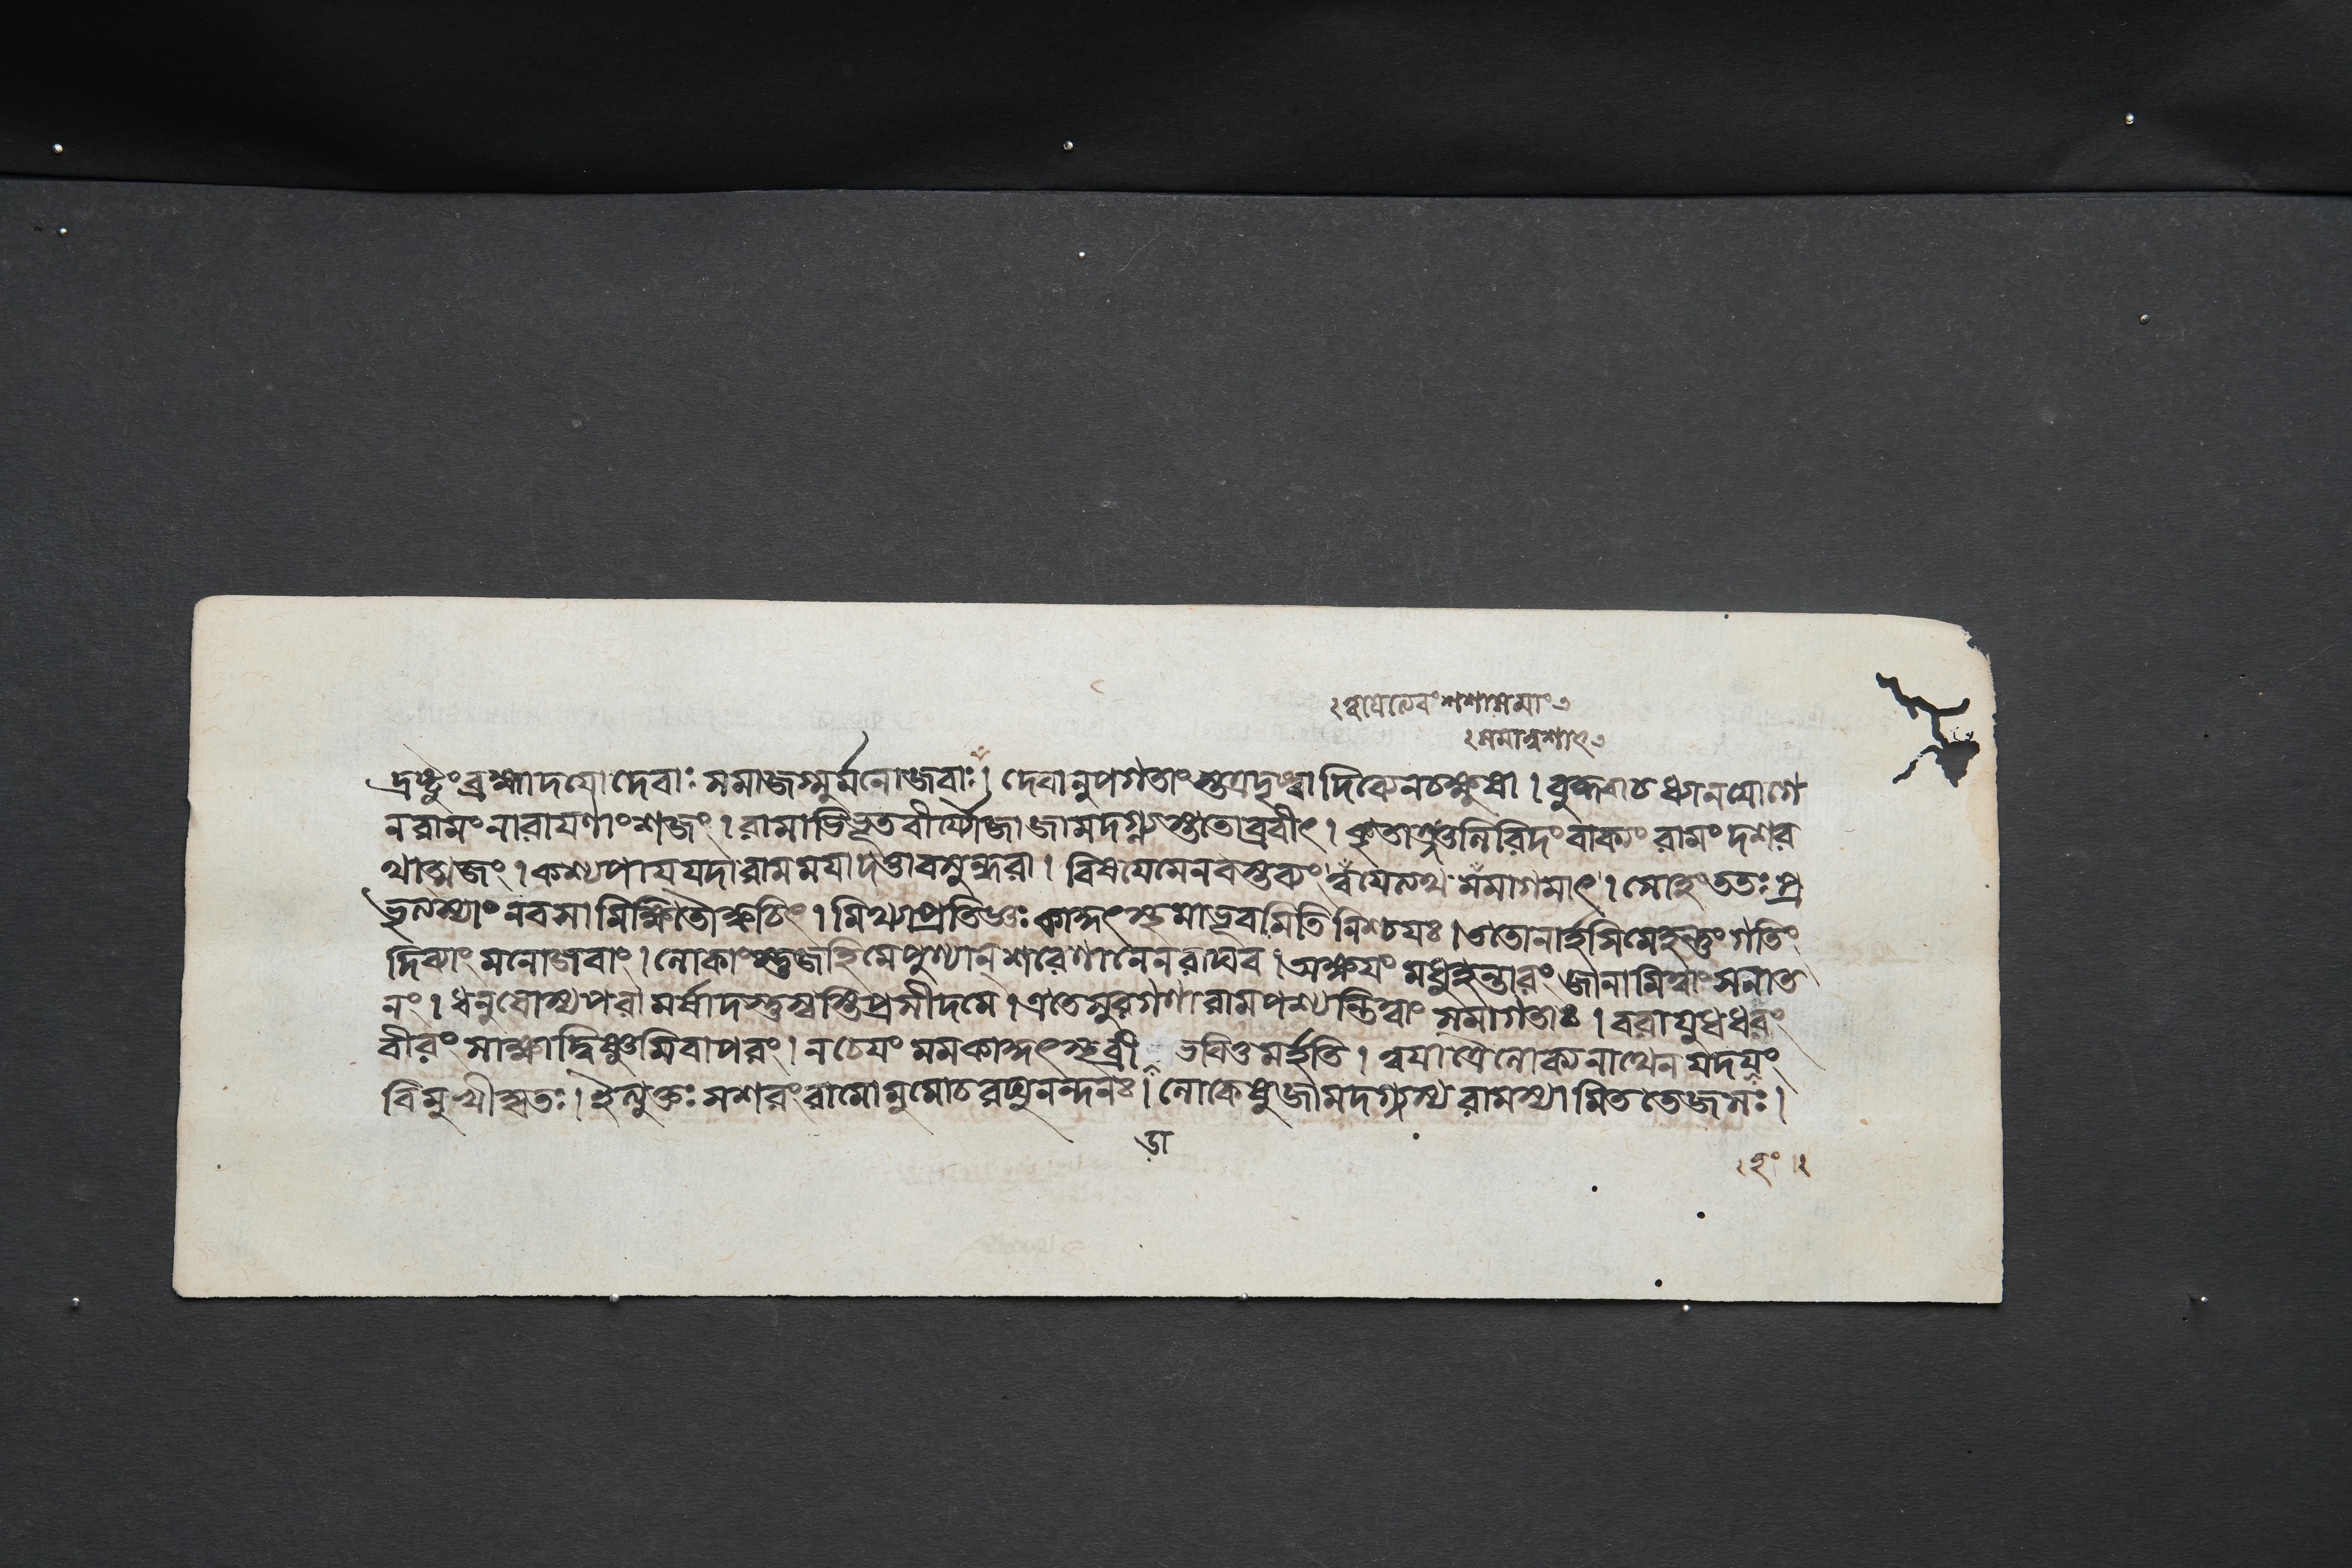 দ্রষ্টুংব্রহ্মাদযোদেবাঃ সমাজগ্মুর্মনোজবাঃ। দেবানুপগতাংস্তত্রদৃষ্ট্বাদিব্যেনচক্ষুষা। বুদ্ধ্বাচধ্যানযোগে
নরামংনারাযণাংশজং। রামাভিভূতবীর্য্যৌজাজামদগ্ন্যস্ততোব্রবীৎ। কৃতাঞ্জলিরিদংবাক্যং রামংদশর
থাত্মজং। কশ্যপাযযদারামমযাদত্তাবসুন্ধরা। বিষযেমেনবস্তব্যং ত্বযেত্যথ সমাগমাৎ। সোহংততঃপ্র
ভৃত্যস্যাং নবসামিক্ষিতৌক্বচিৎ। মিথ্যাপ্রতিজ্ঞঃ কাকুৎস্থমাভূবমিতিনিশ্চযঃ। ততোনার্হসিমেহন্তুংগতিং
দিব্যাংমনোজবাং। লোকাংস্তুজহিমেপুণ্যান্শরেণানেনরাঘব। অক্ষযং মধুহন্তারং জানামিত্বাংসনাত
নং। ধনুষোস্যপরামর্ষাদস্তুস্বস্তিপ্রসীদমে। এতেসুরগণারামপশ্যন্তিত্বাং সমাগতাঃ। বরাযুধধরং
বীরং সাক্ষাদ্বিষ্ণুমিবাপরং। নচেযং মমকাকুৎস্থব্রী ভবিতুমর্হতি। ত্বযাত্রৈলোক্যনাথেন যদযং
বিমুখীকৃতঃ। ইত্যুক্তঃ সশরংরামোমুমোচরঘুনন্দনঃ। লোকেষুজামদগ্ন্যস্যরামস্যামিততেজসঃ।
ডা